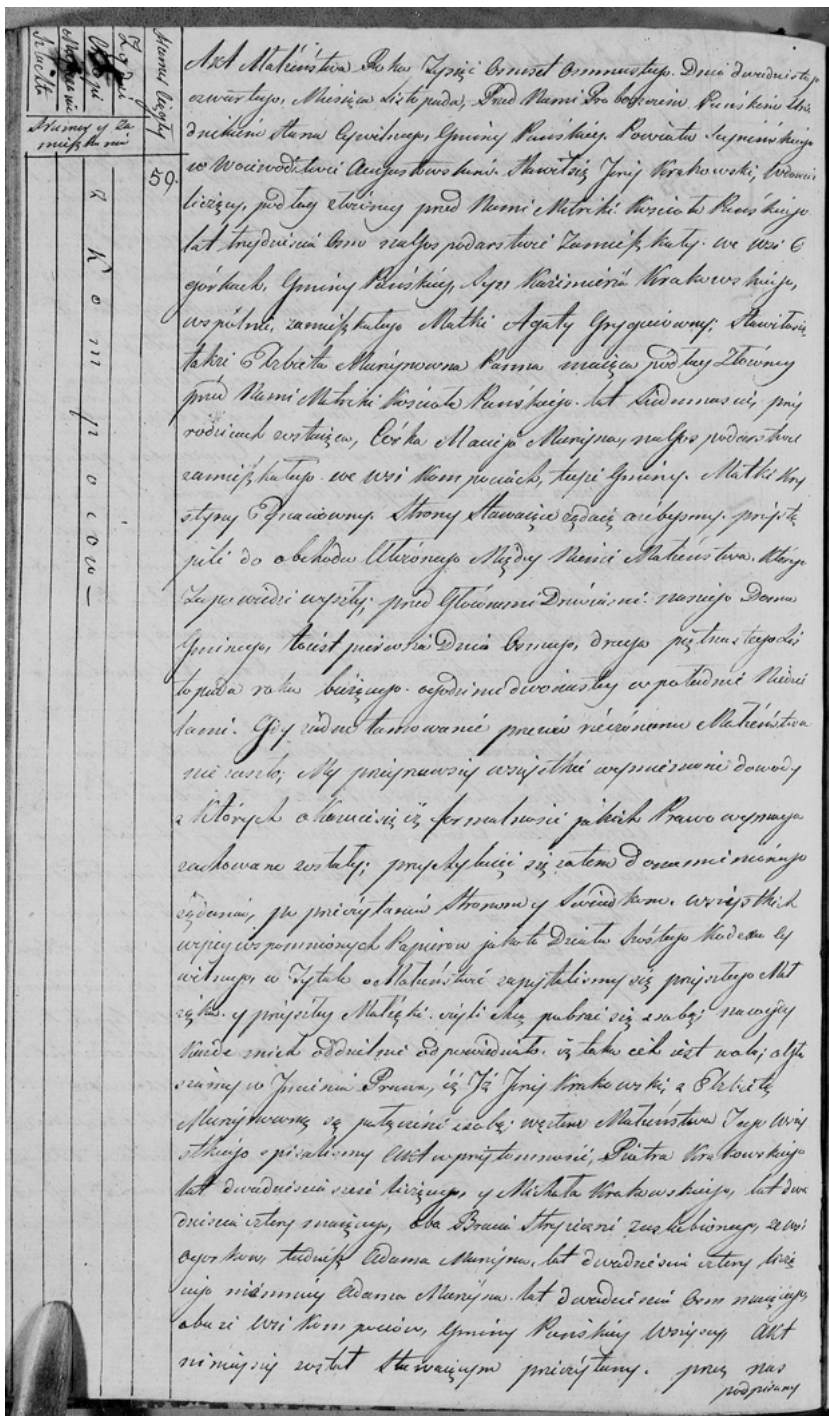 Numer Ciągły
59.
z Kompociow —
Akt Małżeństwa Roku Tysiąc Osmset Osmnastego. Dnia dwudziestego
czwartego, Miesiąca Listopada, Przed Nami Proboszczem Puńskim Urzę
dnikiem Stanu Cywilnego, Gminy Puńskiey, Powiatu Seyneńskiego
w Woiewodztwie Augustowskim. Stawił się Jerzy Krakowski,
liczący, podług złożoney przed Nami Metriki Kościoła Puńskiego
lat trzydzieści Osm na Gospodarstwie Zamieszkały. we wsi O
górkach, Gminy Puńskiey, Syn Kazimierza Krakowskiego,
wspólnie, zamieszkałego Matki Agaty Grygucíowny; Stawiła się
także Elżbieta Murynowna Panna maiąca podług Złożoney
przed Nami Metriki Kościoła Puńskiego. lat Siedmnaście, przy
rodzicach zostaiąca, Córka Macieja Muryna, na Gospodarstwie
zamieszkałego. we wsi Kompociach, teyże Gminy. Matki Kry
styny Strony Stawaiące żądaią ażebysmy. przystą
pili do obchodu Ułożonego Między Niemi Małżeństwa. Którego
Zapowiedzi wyszły; przed Głównemi Drzwiami. naszego Domu
Gminnego, to iest pierwsza Dnia Osmego, druga piętnastego Lis
topada roku bieżącego. o godzinie dwunastey w południe Niedzie
lami. Gdy żadne tamowanie przeciw rzeczonemu Małżeństwu
nie zaszło; My przeyrzawszy wszystkie wymienione dowody
z Których okazuie się iż formalności jakich Prawo wymaga
zachowane zostały; przychylaiąc się zatem do namienionego
żądania, po przeczytaniu Stronom y Świadkom. wszystkich
wyżey wspomnionych Papierow jako to Działu Szóstego Kodexu Cy
wilnego, w Tytule o Małżeństwie zapytaliśmy się przyszłego Mał
żonka. y przyszłey Małżonki. czyli chcą pobrać się z sobą; na co gdy
Każde z nich oddzielnie odpowiedziało. iż taka ich iest wola; ogła
szamy w Jmieniu Prawa, iż Jerzy Krakowski, z Elżbietą
Murynowną są połączeni z sobą; węzłem Małżeństwa Czego wszy
stkiego spisaliśmy Akt w przytomności, Piotra Krakowskiego
lat dwadzieścia sześć liczącego, y Michała Krakowskiego, lat dwa
dzieścia cztery maiącego, oba Bracia Stryieczni zaślubionego, ze wsi
Ogorkow, tudzież Adama Muryna. lat dwadzieścia cztery liczą
cego niemniey Adama Muryna. lat dwadzieścia Osm maiącego,
oba ze Wsi Kompociow, Gminy Puńskiey Wszyscy, Akt
ninieyszy został Stawaiącym przeczytany. przez nas
podpisany